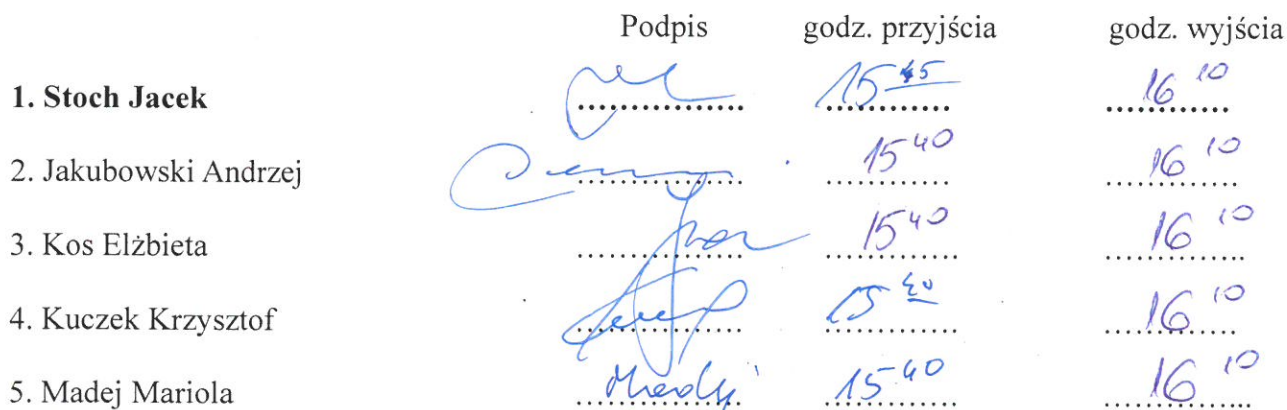 Podpis godz. przyjścia godz. wyjścia
1. Stoch Jacek .............. 15 45 16 10
2. Jakubowski Andrzej .............. 15 40 16 10
3. Kos Elżbieta .............. 15 40 16 10
4. Kuczek Krzysztof .............. 15 40 16 10
5. Madej Mariola .............. 15 40 16 10